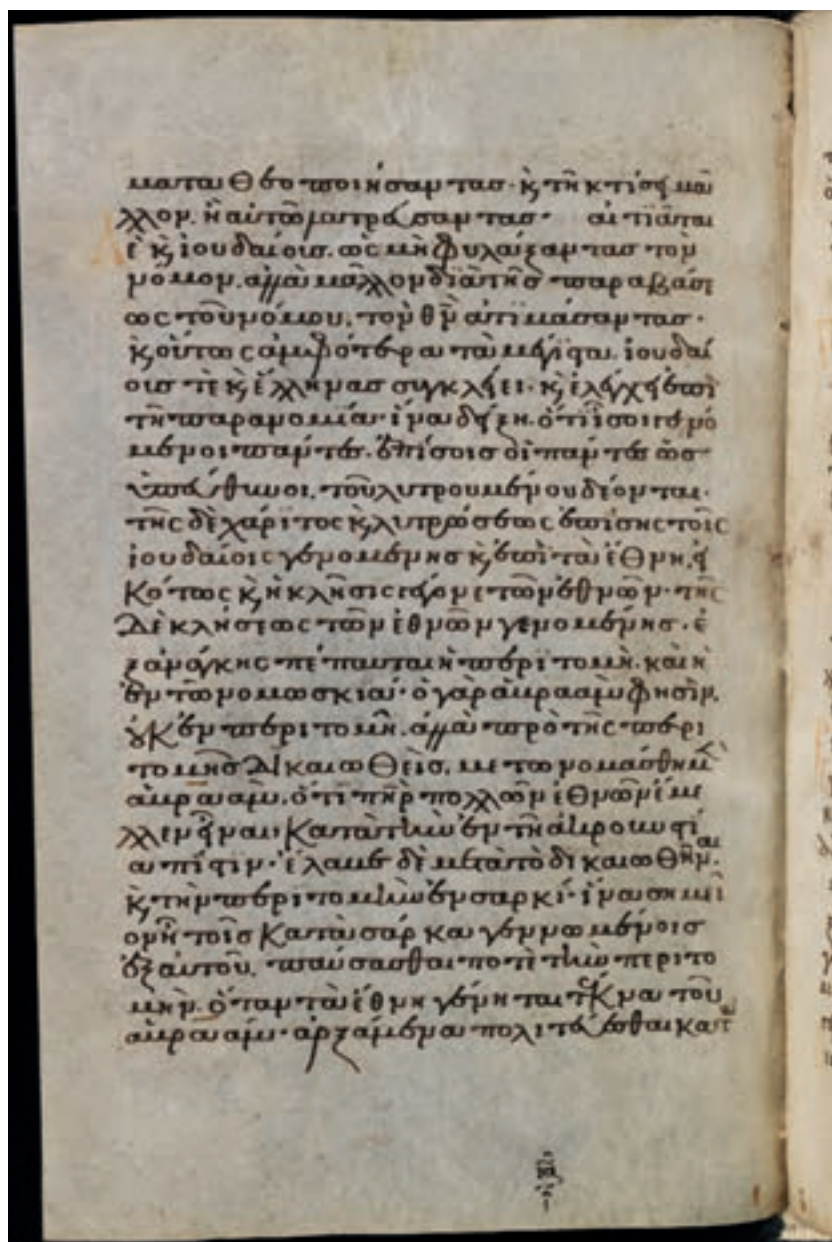 ματα θεοποιήσαντας· κ̀ τῆ κτίσει μᾶ
λλον. ἢ αὐτῶ λατρεύσαντας· αἰτιᾶται
ὲ κ̀ ἰουδαίοις. ὡς μὴ φυλάξαντας τὸν
νόμον. ἀλλὰ μᾶλλον διὰ τῆς παραβάσε
ως τοῦ νόμου, τὸν θν̄ ἀτιμάσαντας·
κ̀ οὕτως ἀμφότερα τὰ μέρη. ἰουδαί
οις τὲ κ̀ ἕλληνας συγκλείει· κ̀ ἐλέγχει ἐπὶ
τῆ παρανομία· ἵνα δείξη. ὅτι ἴσοι γενό
μενοι πάντες. ἐπίσοις οἱ πάντες ὡς
ὑπεύθυνοι, τοῦ λυτρουμένου δέονται·
τῆς δὲ χάριτος κ̀ λυτρώσεως ἐπίσης τοῖς
ἰουδαίοις γενομένης κ̀ ἐπὶ τὰ ἔθνη, εἰ
κότως κ̀ ἡ κλῆσις γέγονε τῶν ἐθνῶν· τῆς
δὲ κλήσεως τῶν ἐθνῶν γενομένης. ἐ
ξανάγκης πέπαυται ἡ περιτομὴ. καὶ ἡ
ἐν τῶ νόμω σκιά· ὁ γὰρ ἀβραὰμ φησὶν,
οὐκ ἐν περιτομῆ. ἀλλὰ πρὸ τῆς περι
τομῆς δικαιωθεὶς, μετωνομάσθη
ἀβραάμ. ὅτι πη̄ρ πολλῶν ἐθνῶν ἔμε
λλεν εἶναι κατὰ τὴν ἐν τῆ ἀκροβυστί
α πίστιν· ἔλαβε δὲ μετὰ τὸ δικαιωθῆναι.
κ̀ τὴν περιτομὴν ἐν σαρκί· ἵνα σημεῖ
ον ἦ τοῖς κατὰ σάρκα γεννωμένοις
ἐξ αὐτοῦ, παύσασθαι ποτὲ τὴν περιτο
μὴν. ὅταν τὰ ἔθνη γένηται τέκνα τοῦ
ἀβραάμ· ἀρξάμενα πολιτεύεσθαι κατὰ